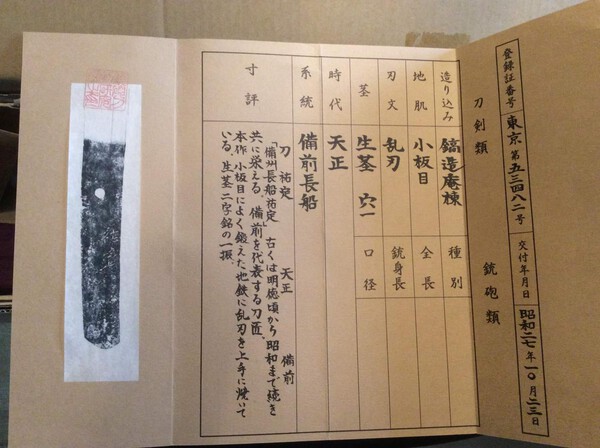 登録証番号 東京 第五三四八二号 交付年月日 昭和二七年一〇月二三日
刀剣類 銃砲類
造り込み 鎬造庵棟 種別
地肌 小板目 全長
刃文 乱刃 銃身長
茎 生茎 穴一 口径
時代 天正
系統 備前長船
寸評
刀 祐定 天正 備前
「備州長船祐定」古くは明徳頃から昭和まで続き
共に栄える。備前を代表する刀匠。
本作、小板目によく鍛えた地鉄に乱刃を上手に焼いて
いる。生茎二字銘の一振。